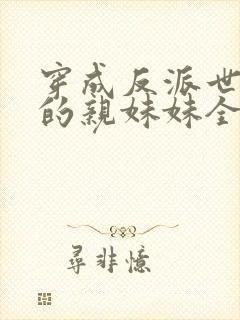 穿成反派世
的親妹妹全
尋非憶